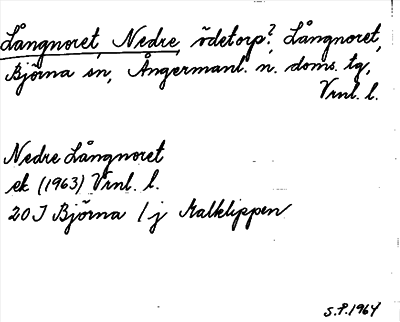 Långnoret, Nedre, ödetorp?, Långnoret,
Björna sn, Ångermanl. n. doms. tg,
Vrnl. l.
Nedre Långnoret
ek (1963) Vrnl. l.
20 I Björna / j Kalklippen
S.P. 1964